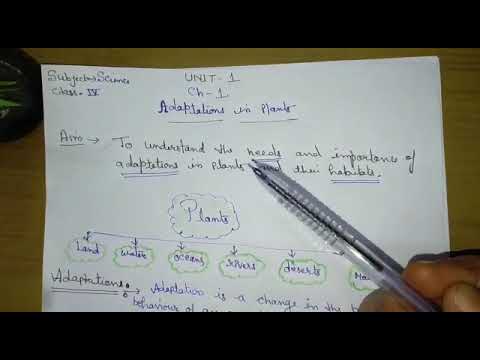 Subject→Science
UNIT-1
Class-IV
Ch-1
Adaptations in Plants
Aim → To understand the needs and importance of
adaptations in Plants and their habitats.
Plants
Land water oceans rivers deserts
Adaptations:→ Adaptation is a change in the
behaviour of